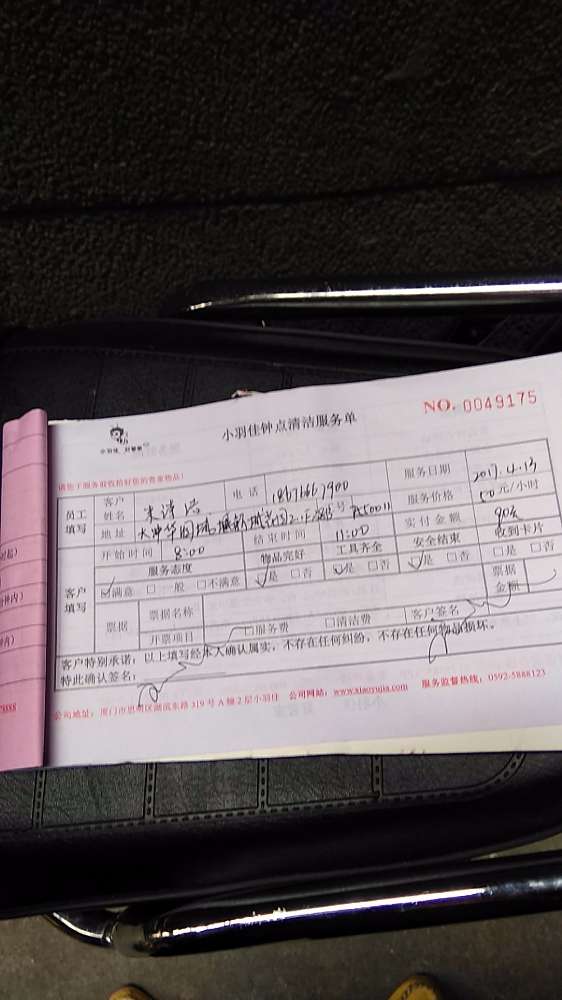 小羽佳钟点清洁服务单
NO. 0049175
小羽佳 好管家
请您于服务前收拾好您的贵重物品!
员工填写 客户姓名 电话 服务日期 2017.4.13
地址 服务价格 50元/小时
开始时间 8:00 结束时间 11:00 实付金额 90元
客户填写 服务态度 物品完好 工具齐全 安全结束 收到卡片
☑满意 □一般 □不满意 ☑是 □否 ☑是 □否 ☑是 □否 □是 □否
票据 票据名称 票据金额
开票项目 □服务费 □清洁费 客户签名
客户特别承诺:以上填写经本人确认属实,不存在任何纠纷,不存在任何物品损坏。
特此确认签名:
公司地址:厦门市思明区湖滨东路319号A幢2层小羽佳 公司网站:www.xiaoyujia.com 服务监督热线:0592-5888123